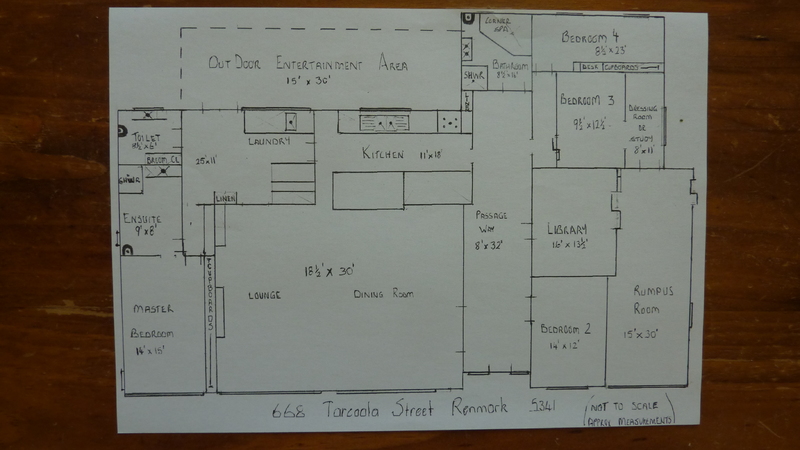 CORNER
SPA
BEDROOM 4
8½' x 23'
OUT DOOR ENTERTAINMENT AREA
15' x 30'
BATHROOM
8½' x 16'
SHWR
DESK CUPBOARDS
BEDROOM 3
9½' x 12½'
DRESSING
ROOM
OR
STUDY
8' x 11'
TOILET
8½' x 6'
BROOM CL
LAUNDRY
25' x 11'
KITCHEN 11' x 18'
SHWR
LINEN
ENSUITE
9' x 8'
PASSAGE
WAY
8' x 32'
LIBRARY
16' x 13½'
18½' x 30'
LOUNGE
DINING ROOM
CUPBOARDS
MASTER
BEDROOM
RUMPUS
ROOM
15' x 30'
BEDROOM 2
14' x 12'
668 Tarcoola Street Renmark 5341
(NOT TO SCALE
APPRX MEASUREMENTS)